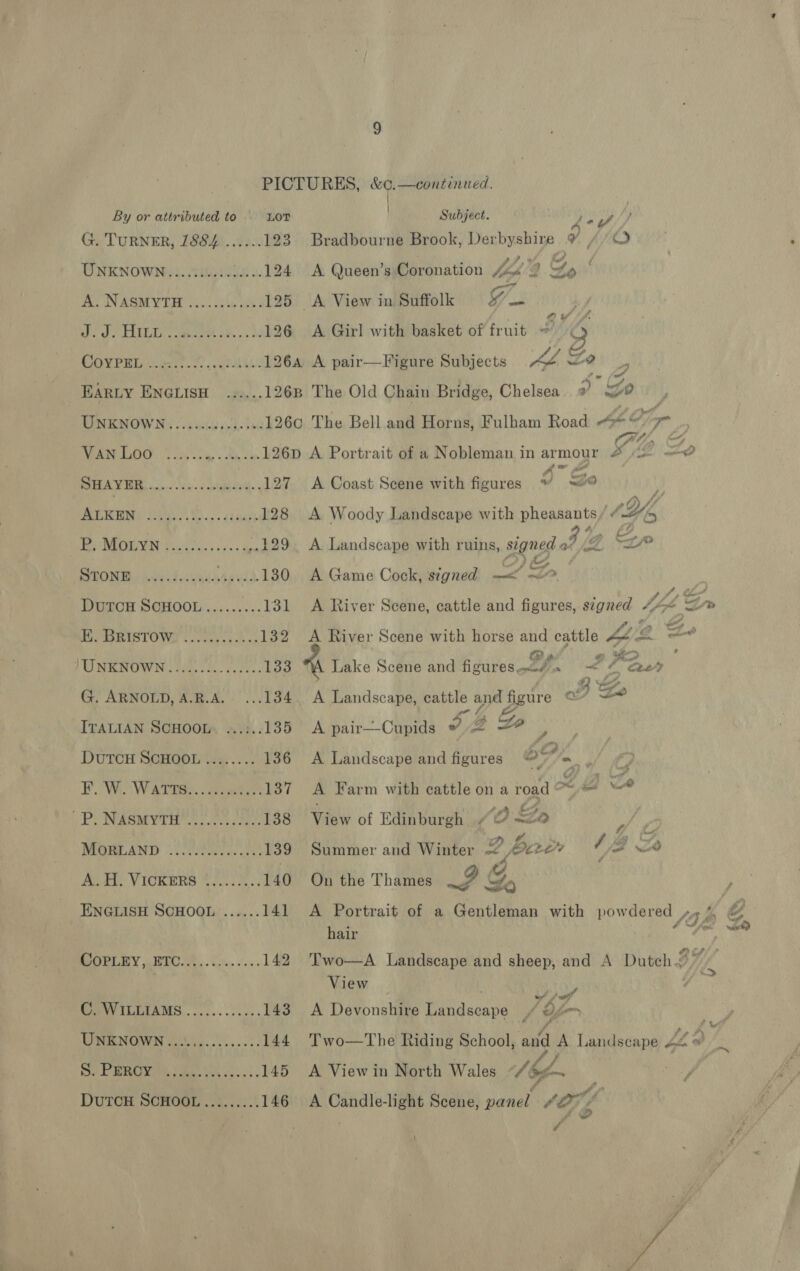 9
PICTURES, &c.—continued.
By or attributed to LOT Subject.
G. TURNER, 1884 ......123 Bradbourne Brook, Derbyshire
UNKNOWN................124 A Queen's Coronation
A. NASMYTH ............125 A View in Suffolk
J. J. HILL ................126 A Girl with basket of fruit
COYPEL ..................126A A pair—Figure Subjects
EARLY ENGLISH ......126B The Old Chain Bridge, Chelsea
UNKNOWN...............126C The Bell and Horns, Fulham Road
VAN LOO ...............126D A Portrait of a Nobleman in armour
SHAYER..................127 A Coast Scene with figures
ALKEN ..................128 A Woody Landscape with pheasants
P. MOLYN ...............129 A Landscape with ruins, signed
STONE ..................130 A Game Cock, signed
DUTCH SCHOOL.........131 A River Scene, cattle and figures, signed
E. BRISTOW ............132 A River Scene with horse and cattle
UNKNOWN...............133 A Lake Scene and figures
G. ARNOLD, A.R.A. ...134 A Landscape, cattle and figure
ITALIAN SCHOOL ......135 A pair—Cupids
DUTCH SCHOOL ........ 136 A Landscape and figures
F. W. WATTS............137 A Farm with cattle on a road
P. NASMYTH ............138 View of Edinburgh
MORLAND ...............139 Summer and Winter
A. H. VICKERS .........140 On the Thames
ENGLISH SCHOOL ......141 A Portrait of a Gentleman with powdered
hair
COPLEY, ETC............142 Two—A Landscape and sheep, and A Dutch
View
C. WILLIAMS ............143 A Devonshire Landscape
UNKNOWN...............144 Two—The Riding School, and A Landscape
S. PERCY ...............145 A View in North Wales
DUTCH SCHOOL.........146 A Candle-light Scene, panel